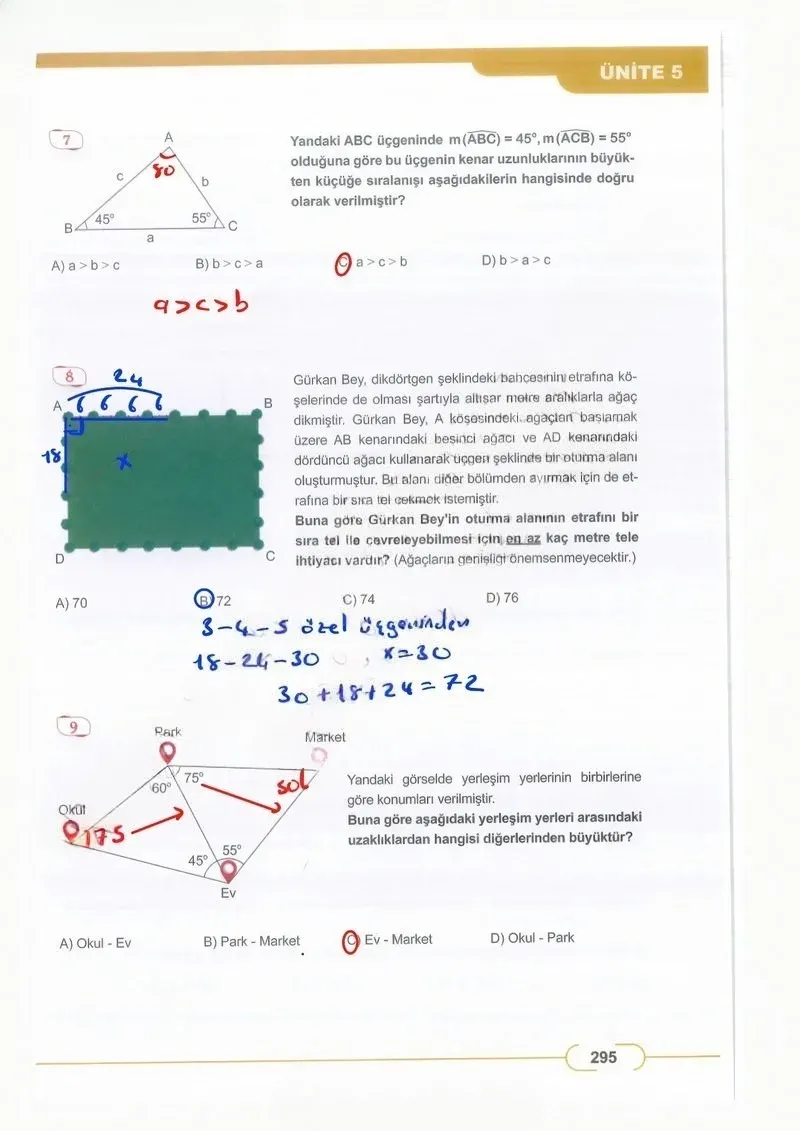 ÜNİTE 5
7
A
80
c
b
B
45°
55°
C
a
Yandaki ABC üçgeninde m(ABC) = 45°, m(ACB) = 55°
olduğuna göre bu üçgenin kenar uzunluklarının büyük-
ten küçüğe sıralanışı aşağıdakilerin hangisinde doğru
olarak verilmiştir?
A) a > b > c
B) b > c > a
C) a > c > b
D) b > a > c
a>c>b
8
24
A
6 6 6 6
B
18
x
D
C
Gürkan Bey, dikdörtgen şeklindeki bahçesinin etrafına kö-
şelerinde de olması şartıyla altışar metre aralıklarla ağaç
dikmiştir. Gürkan Bey, A köşesindeki ağaçtan başlamak
üzere AB kenarındaki beşinci ağacı ve AD kenarındaki
dördüncü ağacı kullanarak üçgen şeklinde bir oturma alanı
oluşturmuştur. Bu alanı diğer bölümden ayırmak için de et-
rafına bir sıra tel çekmek istemiştir.
Buna göre Gürkan Bey'in oturma alanının etrafını bir
sıra tel ile çevreleyebilmesi için en az kaç metre tele
ihtiyacı vardır? (Ağaçların genişliği önemsenmeyecektir.)
A) 70
B) 72
C) 74
D) 76
3-4-5 özel üçgeninden
18-24-30 , x=30
30+18+24=72
9
Park
Market
75°
60°
50
Okul
75
55°
45°
Ev
Yandaki görselde yerleşim yerlerinin birbirlerine
göre konumları verilmiştir.
Buna göre aşağıdaki yerleşim yerleri arasındaki
uzaklıklardan hangisi diğerlerinden büyüktür?
A) Okul - Ev
B) Park - Market
C) Ev - Market
D) Okul - Park
295